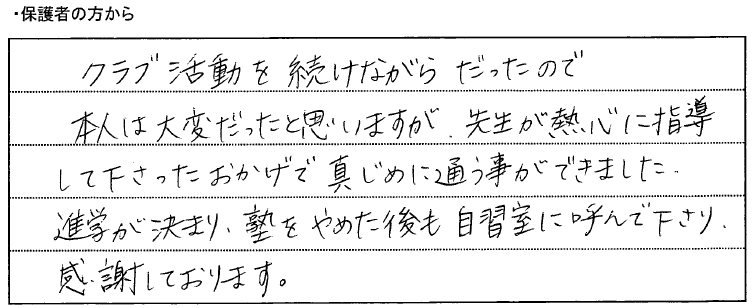 ・保護者の方から
クラブ活動を続けながらだったので
本人は大変だったと思いますが、先生が熱心に指導
して下さったおかげで真じめに通う事ができました。
進学が決まり、塾をやめた後も自習室に呼んで下さり、
感謝しております。